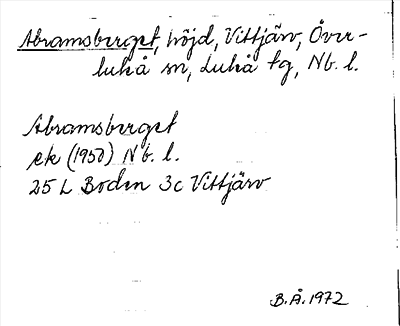 Abramsberget, höjd, Vittjärv, Över-
luleå sn, Luleå tg, Nb. l.
Abramsberget
ek (1950) Nb. l.
25 L Boden 3c Vittjärv
B.Å. 1972